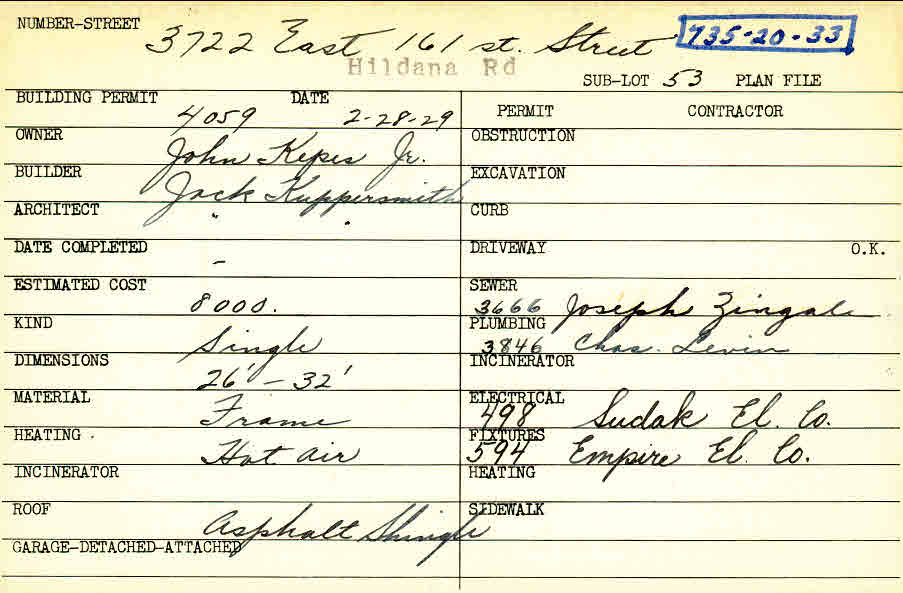 NUMBER-STREET 3722 East 161 st. Street 735-20-33
Hildana Rd
SUB-LOT 53 PLAN FILE
BUILDING PERMIT 4059 DATE 2-28-29
PERMIT CONTRACTOR
OWNER John Kepes Jr.
OBSTRUCTION
BUILDER Jack Kuppersmith
EXCAVATION
ARCHITECT " "
CURB
DATE COMPLETED -
DRIVEWAY O.K.
ESTIMATED COST 8000.
SEWER 3666 Joseph Zingale
KIND Single
PLUMBING 3846 Chas. Levin
DIMENSIONS 26' - 32'
INCINERATOR
MATERIAL Frame
ELECTRICAL 498 Sudak El. Co.
HEATING Hot air
FIXTURES 594 Empire El. Co.
INCINERATOR
HEATING
ROOF Asphalt Shingle
SIDEWALK
GARAGE-DETACHED-ATTACHED